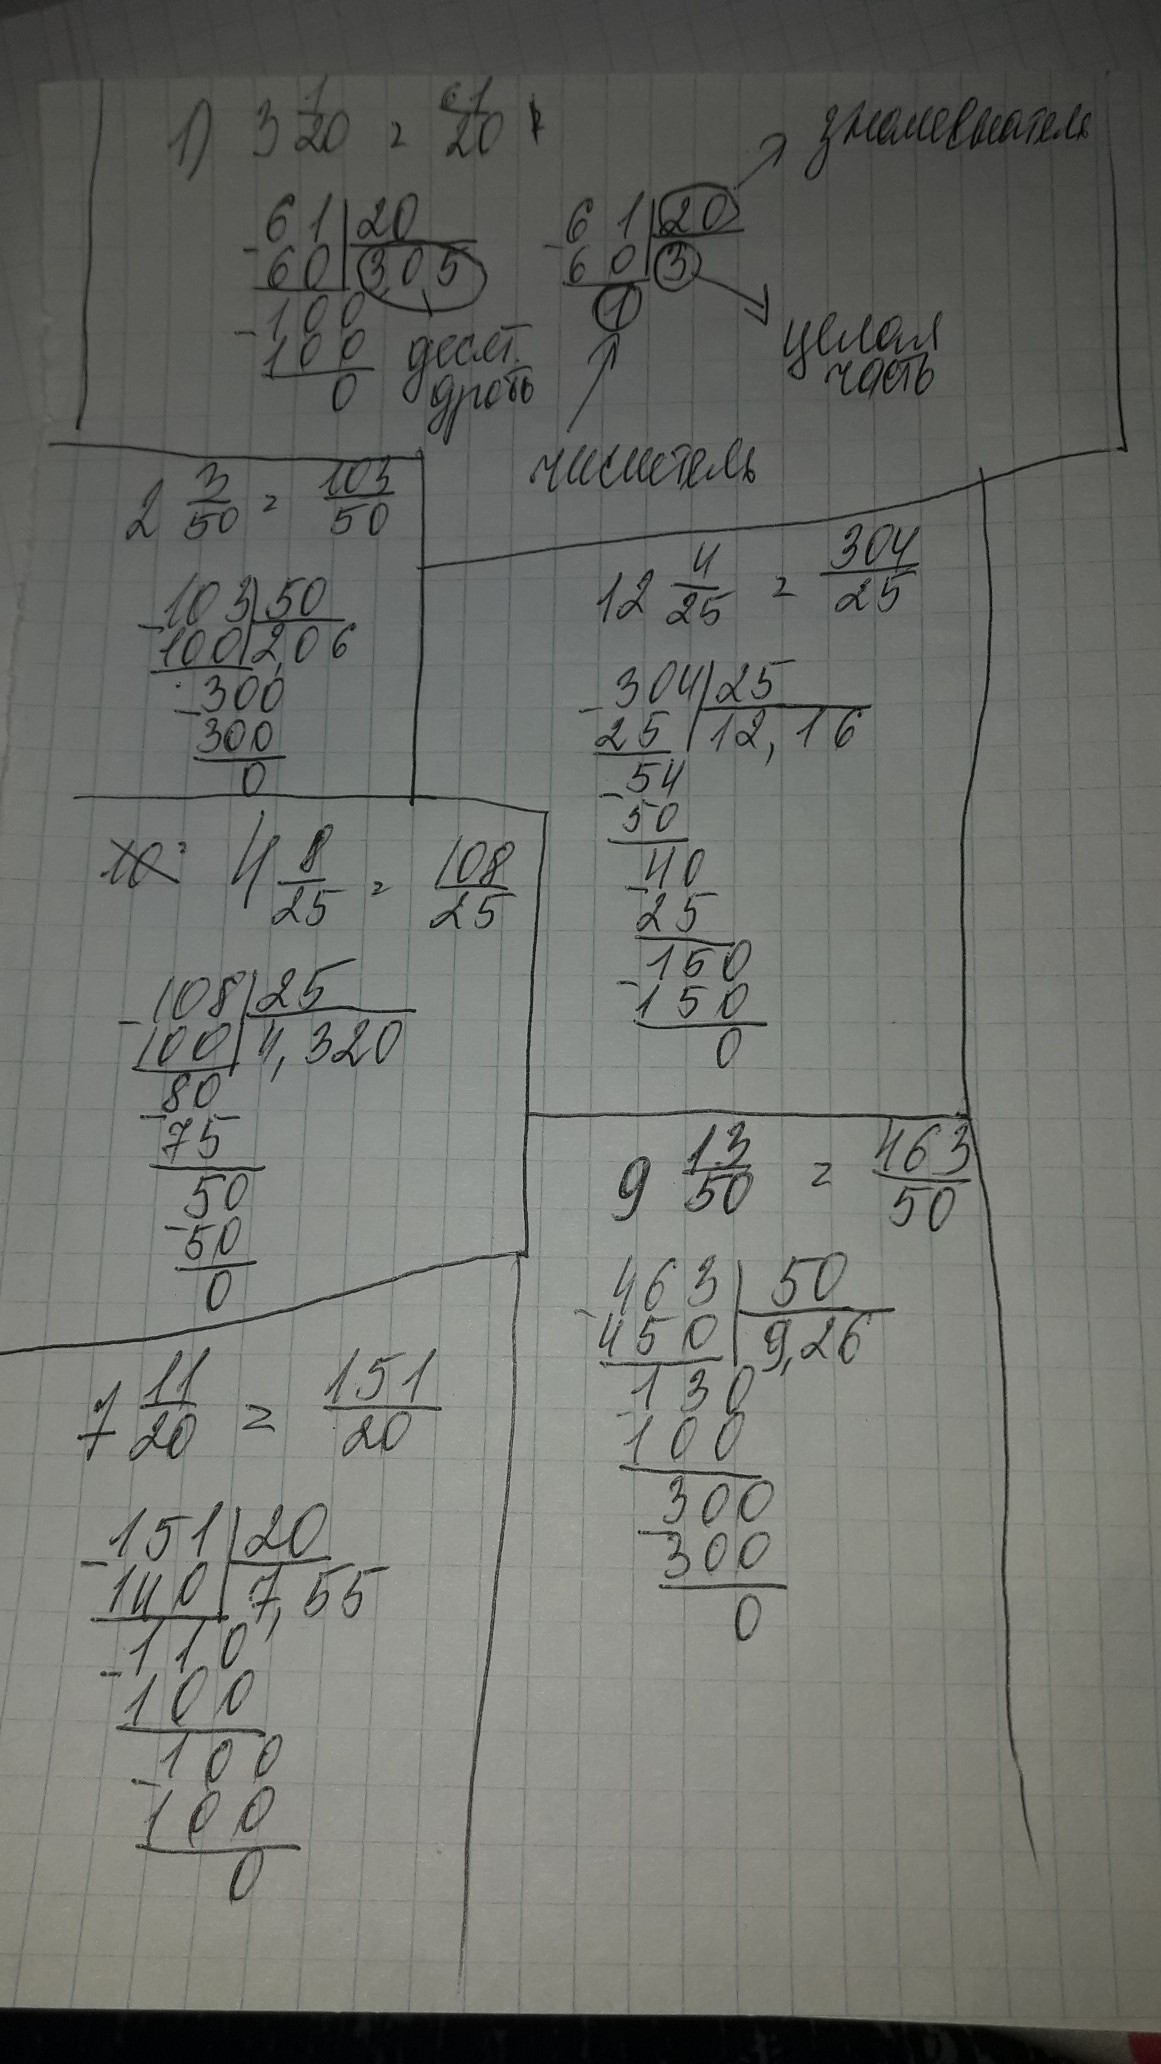 1) 3 1/20 = 61/20
знаменатель
61 20
60 3,05
100
100
0
десят.
дробь
61 20
60 3
1
целая
часть
числитель
2 3/50 = 103/50
103 50
100 2,06
300
300
0
12 4/25 = 304/25
304 25
25 12,16
54
50
40
25
150
150
0
4 8/25 = 108/25
108 25
100 4,320
80
75
50
50
0
9 13/50 = 463/50
463 50
450 9,26
130
100
300
300
0
7 11/20 = 151/20
151 20
140 7,55
110
100
100
100
0